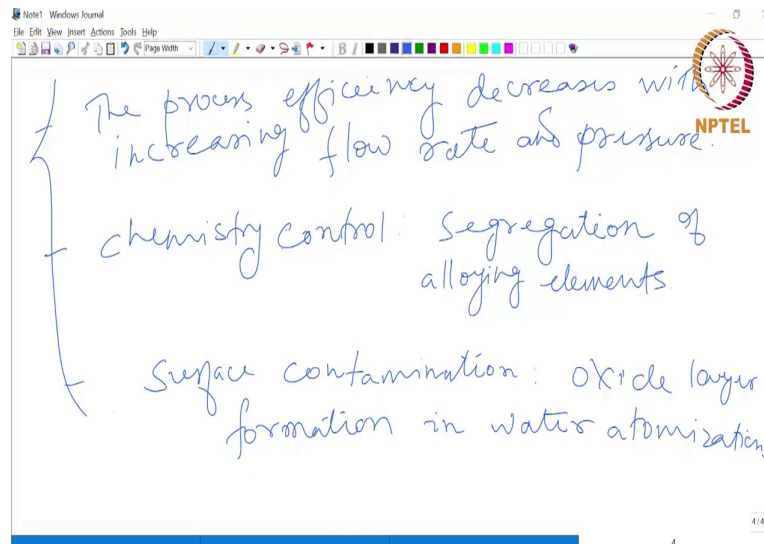 Note1 Windows Journal
File Edit View Insert Actions Tools Help
Page Width
B I
The process efficeincy decreases with
increasing flow rate and pressure.
NPTEL
chemistry control: Segregation of
alloying elements.
Surface contamination: oxide layer
formation in water atomization,
4/4
4